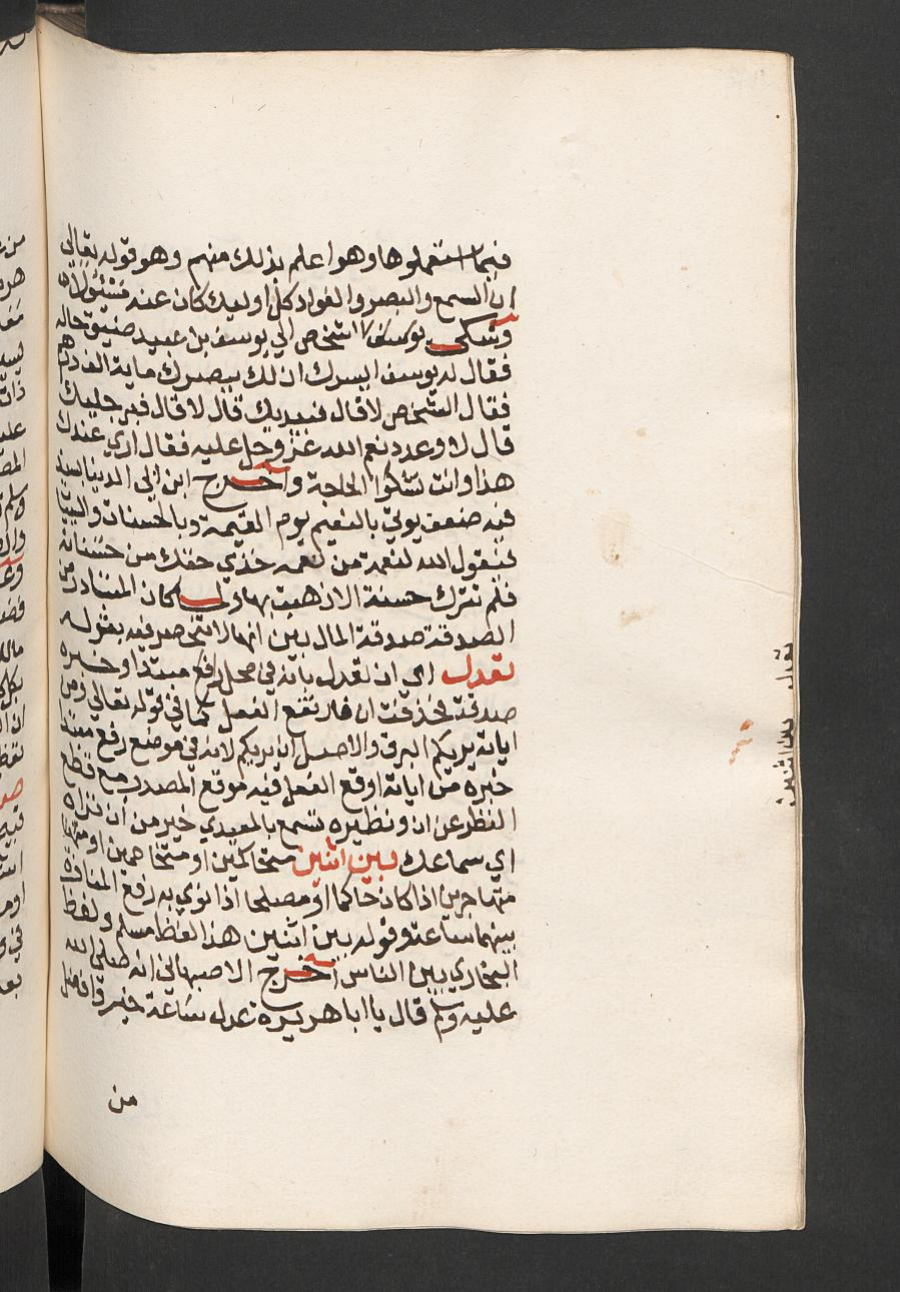 فيما استعملوها وهو اعلم بذلك منهم وهو قوله تعالي
ان السمع والبصر والفواد كل اوليك كان عنه مسئولا
وشكي شخص الي يوسف بن عبيد ضيق حاله
فقال له يوسف ايسرك ان لك ببصرك ماية الف درهم
فقال الشخص لا قال فبيديك قال لا قال فبرجليك
قال لا وعدد نعم الله عز وجل عليه فقال اري عندك
هذا وانت تشكوا الحاجة واخرج ابن ابي الدنيا بسند
فيه ضعف يوتي بالنعيم يوم القيمة وبالحسنات والسيات
فيقول الله لنعمة من نعمه خذي حقك من حسناته
فلم تترك حسنة الا ذهبت بها ولما كان المتبادر من
الصدقة صدقة المال بين انها لا تنحصر فيه بقوله
تعدل اي ان تعدل بانه في محل رفع مبتدا وخبره
صدقة فحذفت ان فارتفع الفعل كما في قوله تعالي ومن
اياته يريكم البرق والاصل ان يريكم لانه في موضع رفع مبتدا
خبره من اياته اوقع الفعل فيه موقع المصدر مع قطع
النظر عن ان ونظيره تسمع بالمعيدي خير من ان تراه
اي سماعك بين اثنين متحاكمين او متخاصمين او
متهاجرين اذا كان حاكما او مصلحا اذا نوي به رفع المنافرة
بينهما ساعة وقوله بين اثنين هذا لفظ مسلم ولفظ
البخاري بين الناس اخرج الاصبهاني انه صلي الله
عليه وسلم قال يا ابا هريرة عدل ساعة خير وافضل
من
تعدل بين اثنين